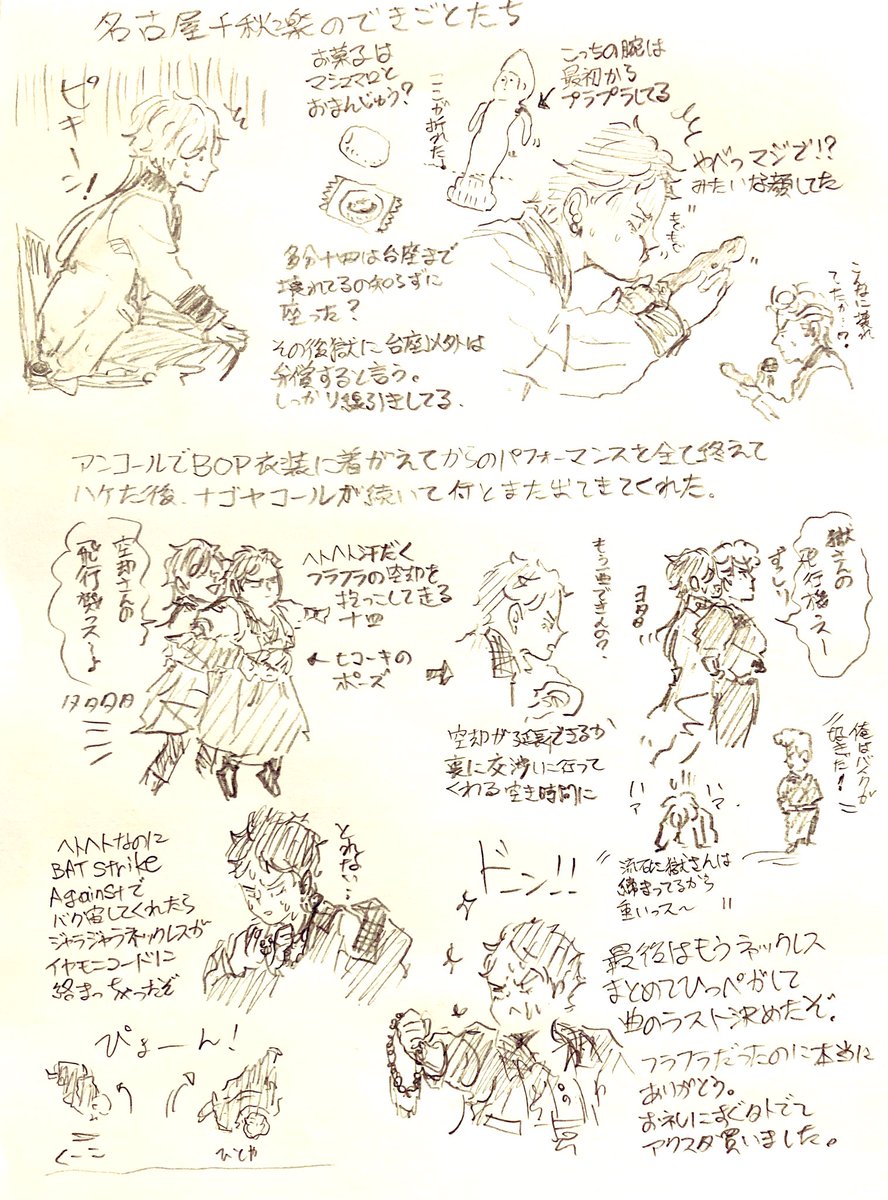 名古屋千秋楽のできごとたち
ピキーン!
お菓子は
マシュマロと
おまんじゅう?
ここが折れた
こっちの腕は
最初から
プラプラしてる
やべっマジで!?
みたいな顔してた
もぞもぞ
こんなに壊れ
てたか…?
多分十四は台座まで
壊れてるの知らずに
座った?
その後獄に台座以外は
弁償すると言う。
しっかり線引きしてる。
アンコールでBOP衣装に着がえてからのパフォーマンスを全て終えて
ハケた後、ナゴヤコールが続いて何とまた出てきてくれた。
空却さんの
飛行機っス〜
ヘトヘト汗だく
フラフラの空却を
抱っこして走る
十四
←ヒコーキの
ポーズ
もう曲できんの?
空却が延長できるか
裏に交渉に行って
くれる空き時間に
獄さんの
飛行機っスー
ずっしり
ヨタヨタ
俺はバイクが
好きだ!
ハァ
ハァ
流石に獄さんは
締まってるから
重いっス〜
ヘトヘトなのに
BAT Strike
Againstで
バク宙してくれたら
ジャラジャラネックレスが
イヤモニコードに
絡まっちゃったぞ
とれない…
ドーン!!
最後はもうネックレス
まとめてひっぺがして
曲のラスト決めたぞ。
フラフラだったのに本当に
ありがとう。
お礼にすぐ外でて
アクスタ買いました。
ぴょーん!
くーこー
ひとや